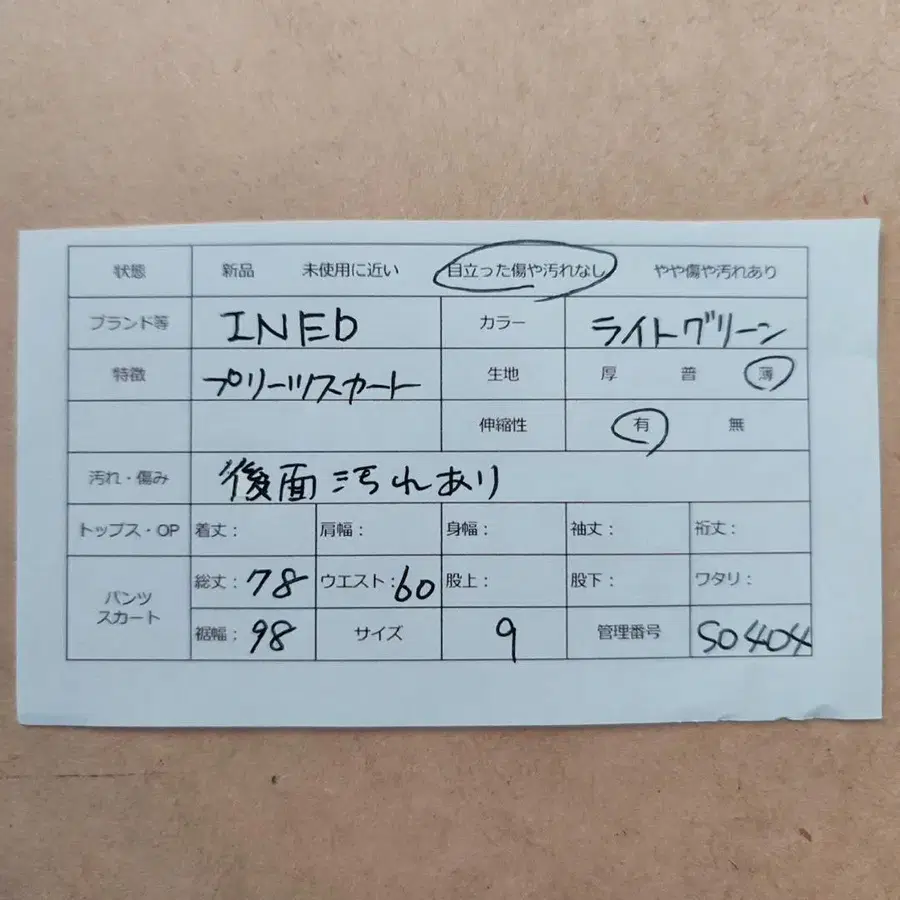 状態 新品 未使用に近い 目立った傷や汚れなし やや傷や汚れあり
ブランド等 INED カラー ライトグリーン
特徴 プリーツスカート 生地 厚 普 薄
伸縮性 有 無
汚れ・傷み 後面汚れあり
トップス・OP 着丈: 肩幅: 身幅: 袖丈: 裄丈:
パンツ スカート 総丈:78 ウエスト:60 股上: 股下: ワタリ:
裾幅:98 サイズ 9 管理番号 S0404